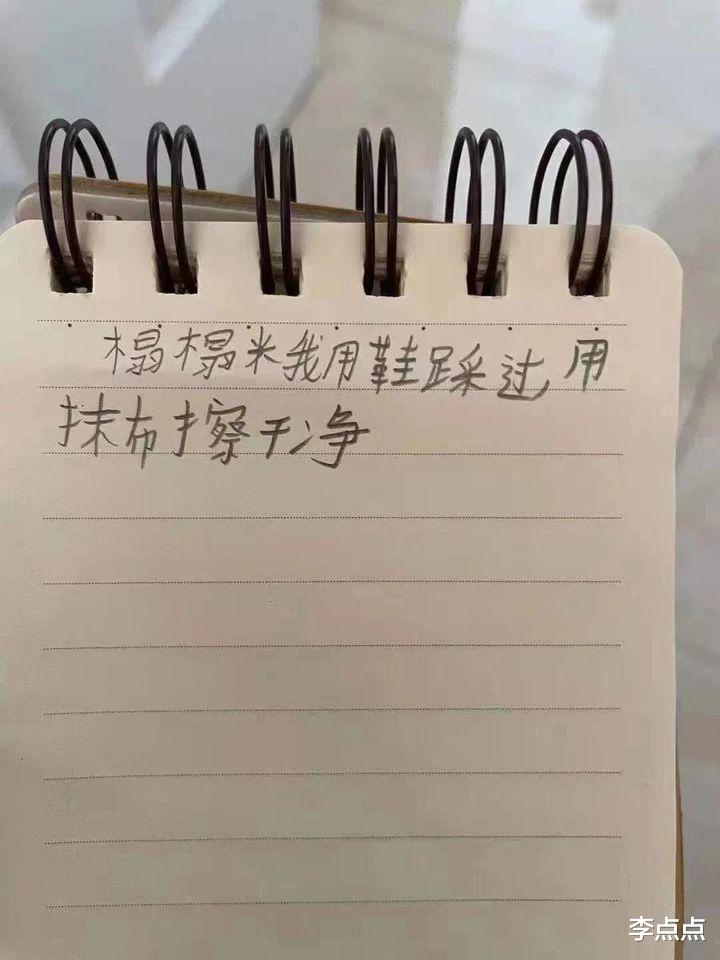 榻榻米我用鞋踩过,用
抹布擦干净
李点点